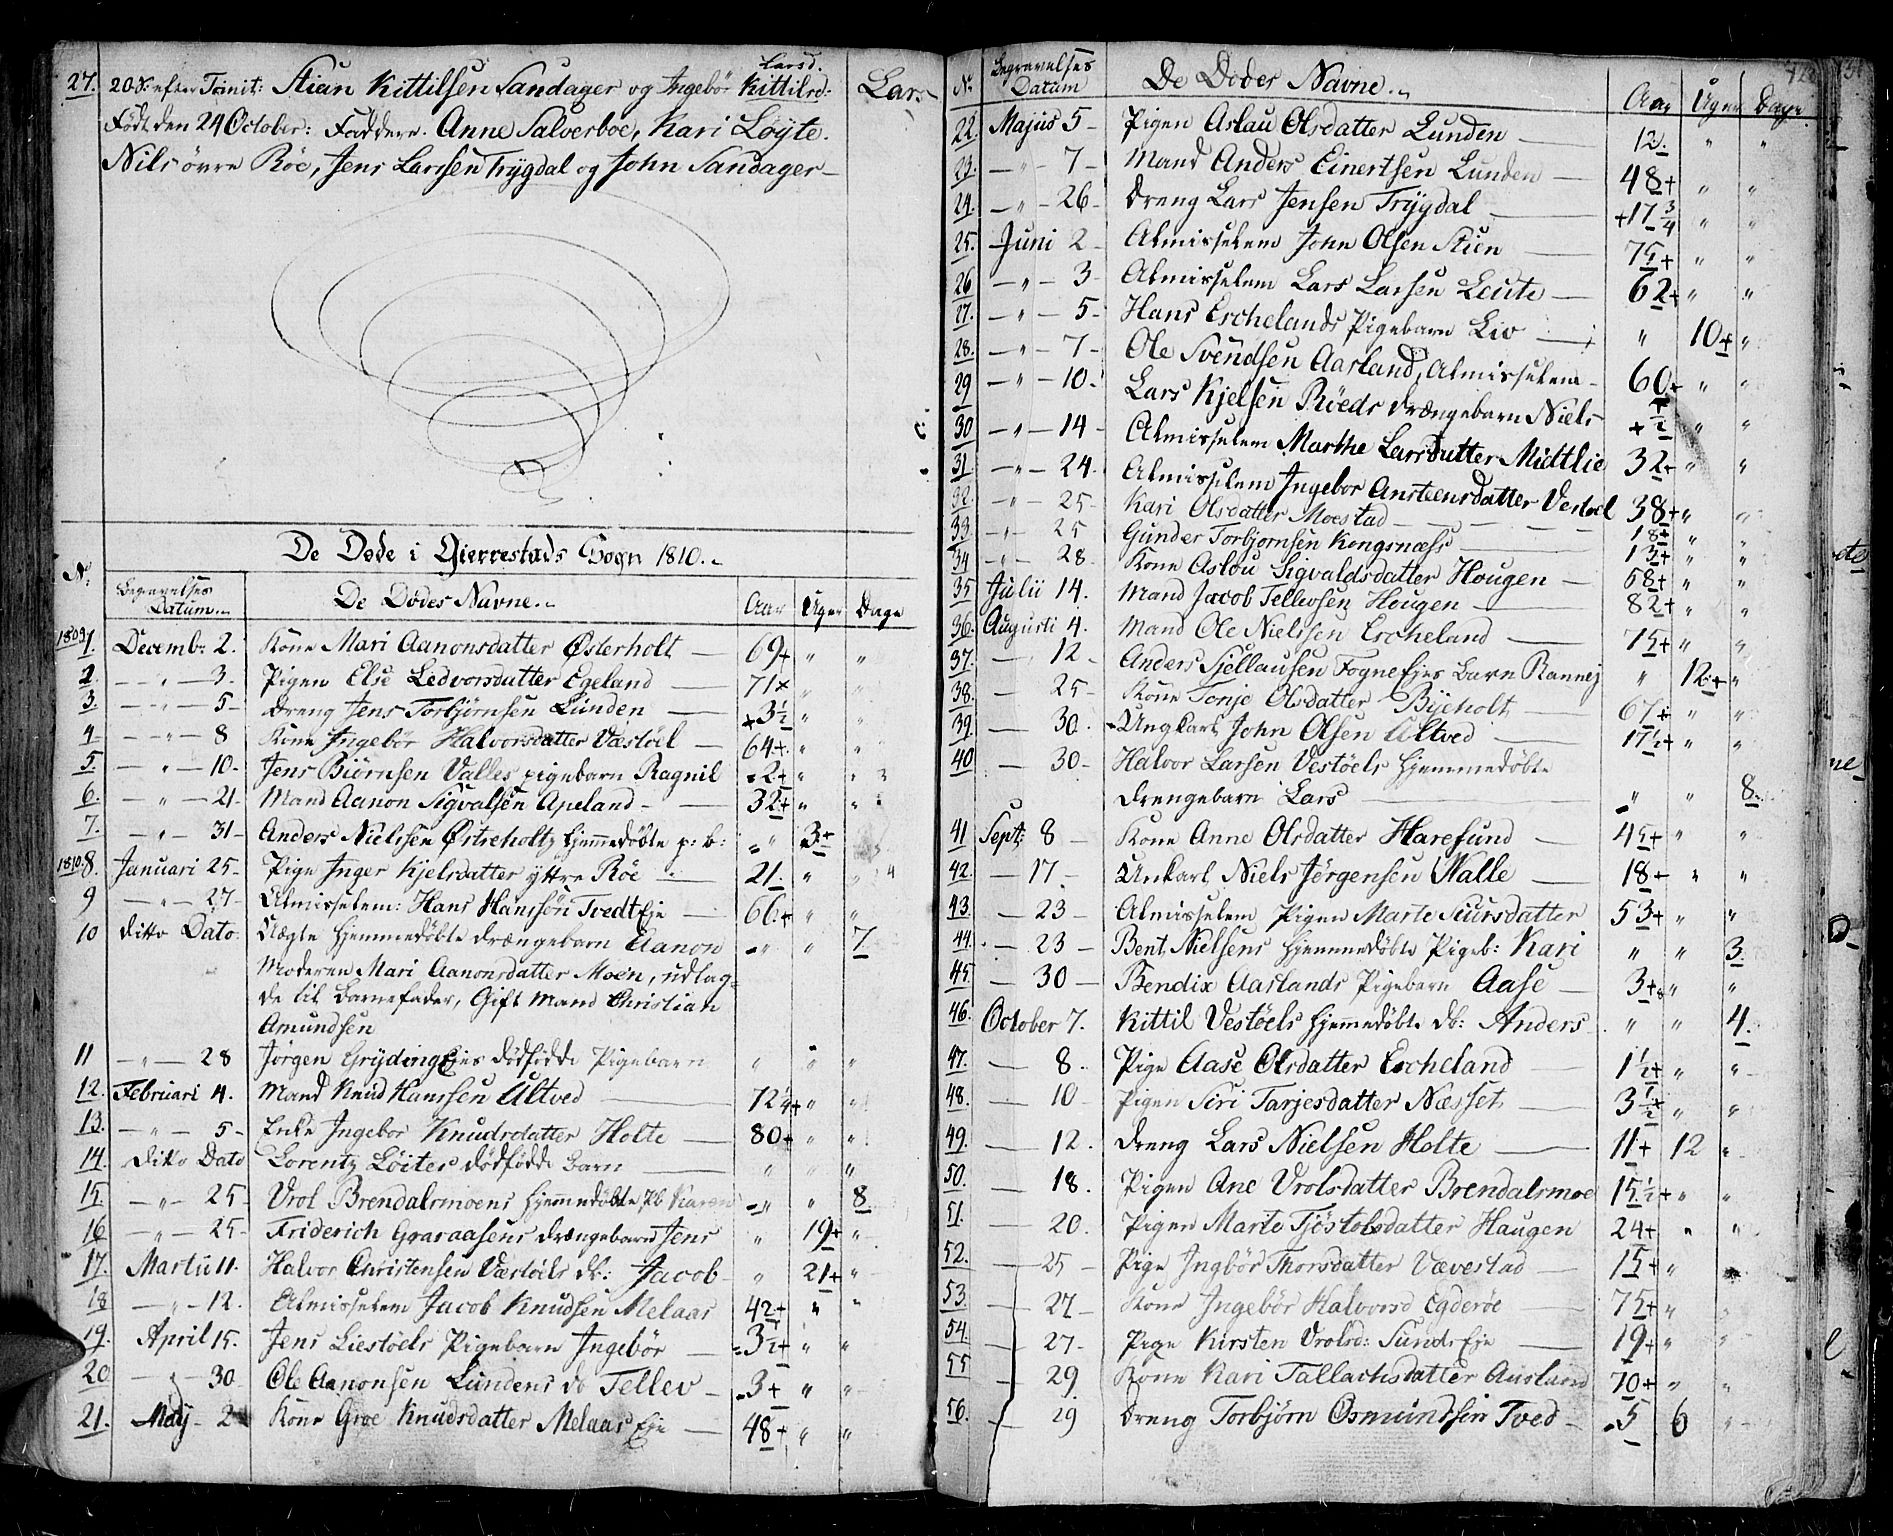 27. 20 S: efter Trinit: Stian Kittilsen Sandager og Ingebör Kittilsd: Larsd. Lars
Født den 24 October: Faddere. Anne Salverboe, Kari Løyte.
Nils övre Röe, Jens Larssen Trygdal og John Sandager
De Døde i Gierrestads Sogn 1810.
N. Begravelses Datum De Dödes Navne Aar Uger Dage
1809 1. Decembr 2. Kone Mari Aanonsdatter Østerholt 69+ " "
2. " 3. Pigen Else Ledvorsdatter Egeland 71+ " "
3. " 5 Dreng Jens Torbjørnsen Lunden +3½ " "
4 " 8 Kone Ingebör Halvorsdatter Væstöel 64+ " "
5. " 10 Jens Biørnsen Valles pigebarn Ragnil 2+ " "
6. " 21 Mand Aanon Sigvalsen Apeland 32+ " "
7. " 31 Anders Nielssen Østreholtz hjemmedøbte p: b: " 3+
1810. 8. Januari 25 Pige Inger Kjelsdatter yttre Röe 21. " "
9 " 27 Almisselem: Hans Hanssøn Tvedt Eje 66+ " "
10 ditto Dato Uægte hjemmedøbte drængebarn Aanon " " 7.
Moderen Mari Aanonsdatter Moen, udlag-
de til Barnefader, Gift Mand Christian
Amundsen
11 " 28 Jörgen Gryding Ejes dödfödde Pigebarn " " "
12. Februari 4. Mand Knud Hanssen Ultved 72¼+ " "
13. " 5 Enke Ingebor Knudsdatter Holte 80+ " "
14. ditto Dato Lorentz Løites dödfödde Barn " " "
15. " 25 Vrol Brendalsmoens hjemmedøbte Pb Karen " " 8.
16 " 25 Friderich Graraasens drængebarn Jens " 19+ "
17. Martii 11. Halvor Christensen Væstöels db: Jacob " 21+ "
18 " 12. Almisselem Jacob Knudsen Melaas 42+ " "
19. April 15. Jens Liestöels Pigebarn Ingebör 3½+ " "
20 " 30 Ole Aanonsen Lundens db Tellev 3+ " "
21. Maij 2 Kone Groe Knudsdatter Melaas Eje 48+ " "
N. Begravelses Datum De Dödes Navne Aar Uger Dage
22. Majus 5 Pigen Aslau Olsdatter Lunden 12. " "
23. " 7 Mand Anders Einertsen Lunden 48+ " "
24. " 26 Dreng Lars Jensen Trygdal +17¾ " "
25. Juni 2 Almisselem John Olsen Stien 75+ " "
26 " 3 Almisselem Lars Larsen Leute 62+ " "
27. " 5 Hans Eschelands Pigebarn Liv " 10+ "
28. " 7 Ole Svendsen Aasland, Almisselem 60+ " "
29 " 10. Lars Kjelsen Röeds drængebarn Niels +½ " "
30 " 14 Almisselem Marthe Larsdatter Midtlie 32+ " "
31 " 24. Almisselem Ingebor Ansteensdatter Vestöel 38+ " "
32. " 25 Kari Olsdatter Moestad 18+ " "
33. " 25 Gunder Torbjornsen Kongsnæss 13+ " "
34 " 28 Kone Aslou Sigvaldsdatter Hougen 58+ " "
35 Julii 14. Mand Jacob Tellevsen Hougen 82+ " "
36. Augusti 4. Mand Ole Nielssen Escheland 75+ " "
37. 12 Anders Sjellausen Fogne Ejes Barn Rannej " 12+ "
38. 25 Kone Tonje Olsdatter Bijeholt 67+ " "
39 30. Ungkarl John Olsen Ultved 17½+ " "
40 30 Halvor Larsen Vestöels hjemmedøbte
drengebarn Lars " " 8.
41 Sept: 8 Kone Anne Olsdatter Haresund 45+ " "
42. 17 Unkarl Niels Jörgensen Walle 18+ " "
43. 23 Almisselem Pigen Marte Siursdatter 53+ " "
44. 23 Bent Nielsens hjemmedøbte Pigeb: Kari " " 3.
45. 30 Bendix Aaslands Pigebarn Aase 3+ " "
46. October 7. Kittil Vestöels hjemmedøbte db: Anders " " 4.
47. 8. Pige Aase Olsdatter Escheland 1½+ " "
48. 10 Pigen Siri Tarjesdatter Næsset 3½+ " "
49. 12. Dreng Lars Nielsen Holte 11+ 12 "
50. 18. Pigen Ane Vrolsdatter Brendalsmoe 15½+ " "
51. 20. Pigen Marte Tjöstolsdatter Haugen 24+ " "
52. 25 Pige Ingbör Thorsdatter Vævestad 15+ "
53. 27 Kone Ingebör Halvorsd Egderöe 75+ "
54. 27 Pige Kirsten Vrolsd: Sunds Eje 19+ "
55 29 Kone Kari Tallachsdatter Ausland 70+ " "
56. 29 Dreng Torbjörn Osmundsen Tved 5 6 "